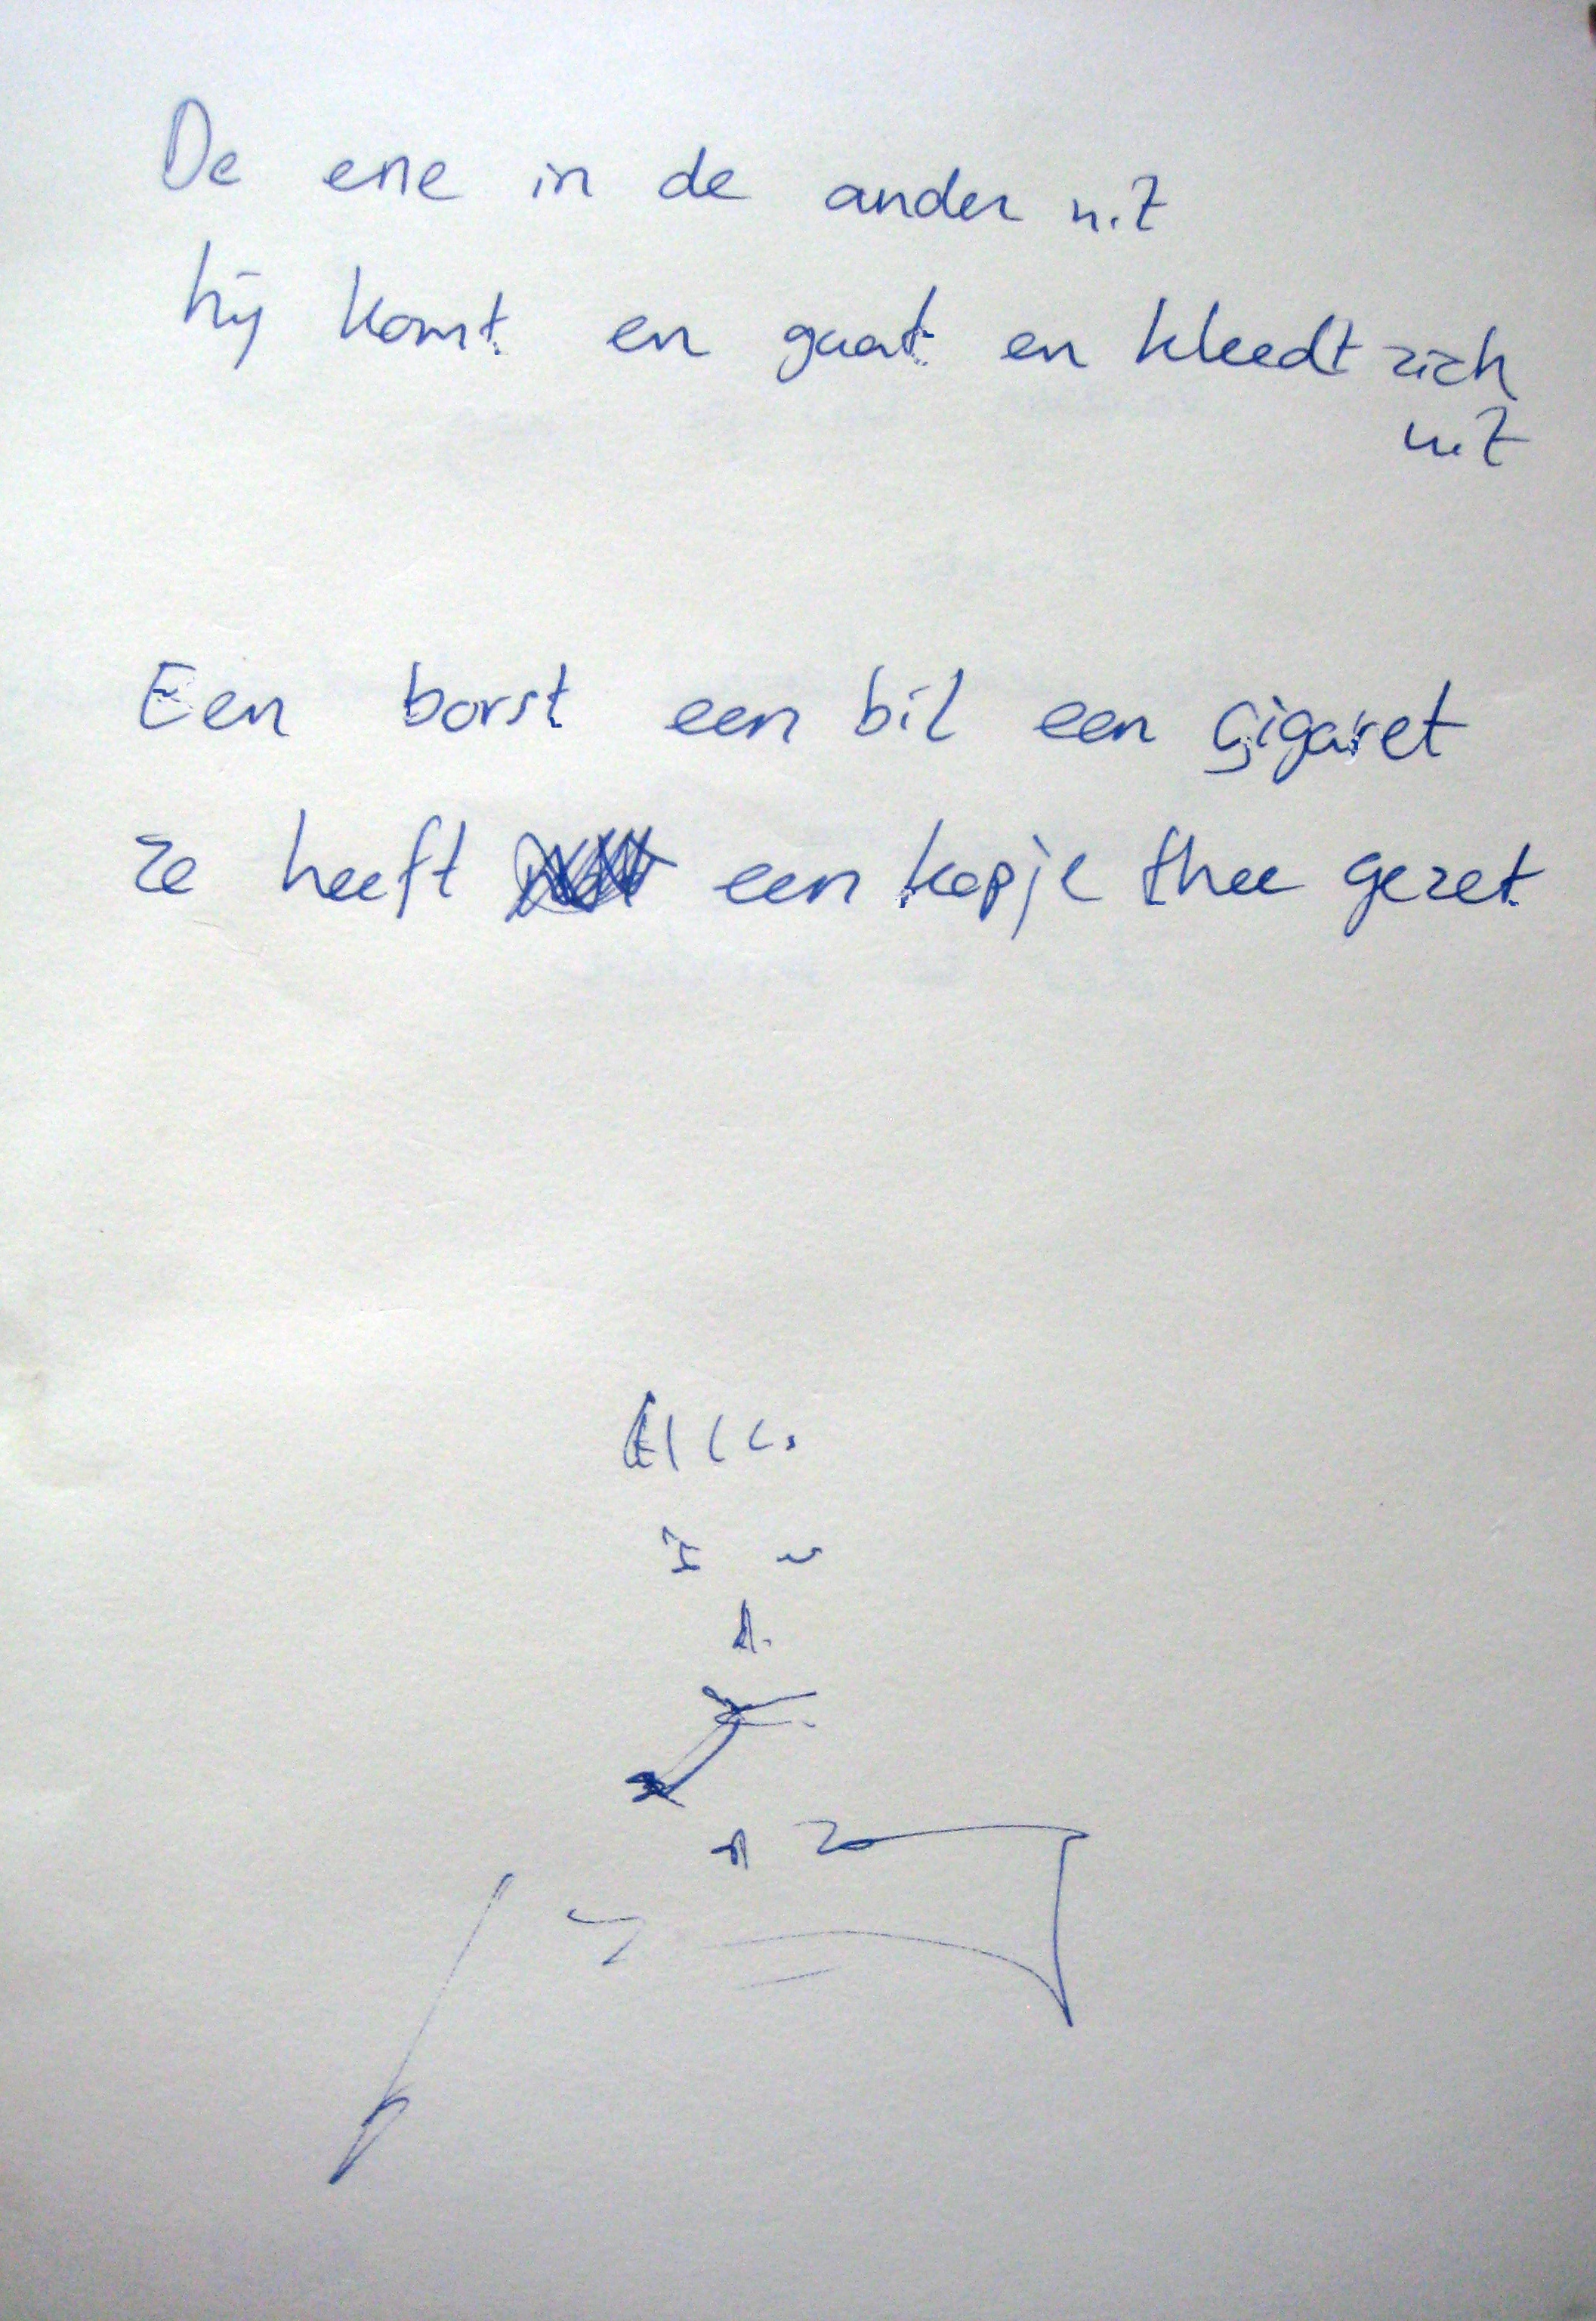 De ene in de ander uit
hij komt en gaat en kleedt zich
uit
Een borst een bil een sigaret
ze heeft een kopje thee gezet